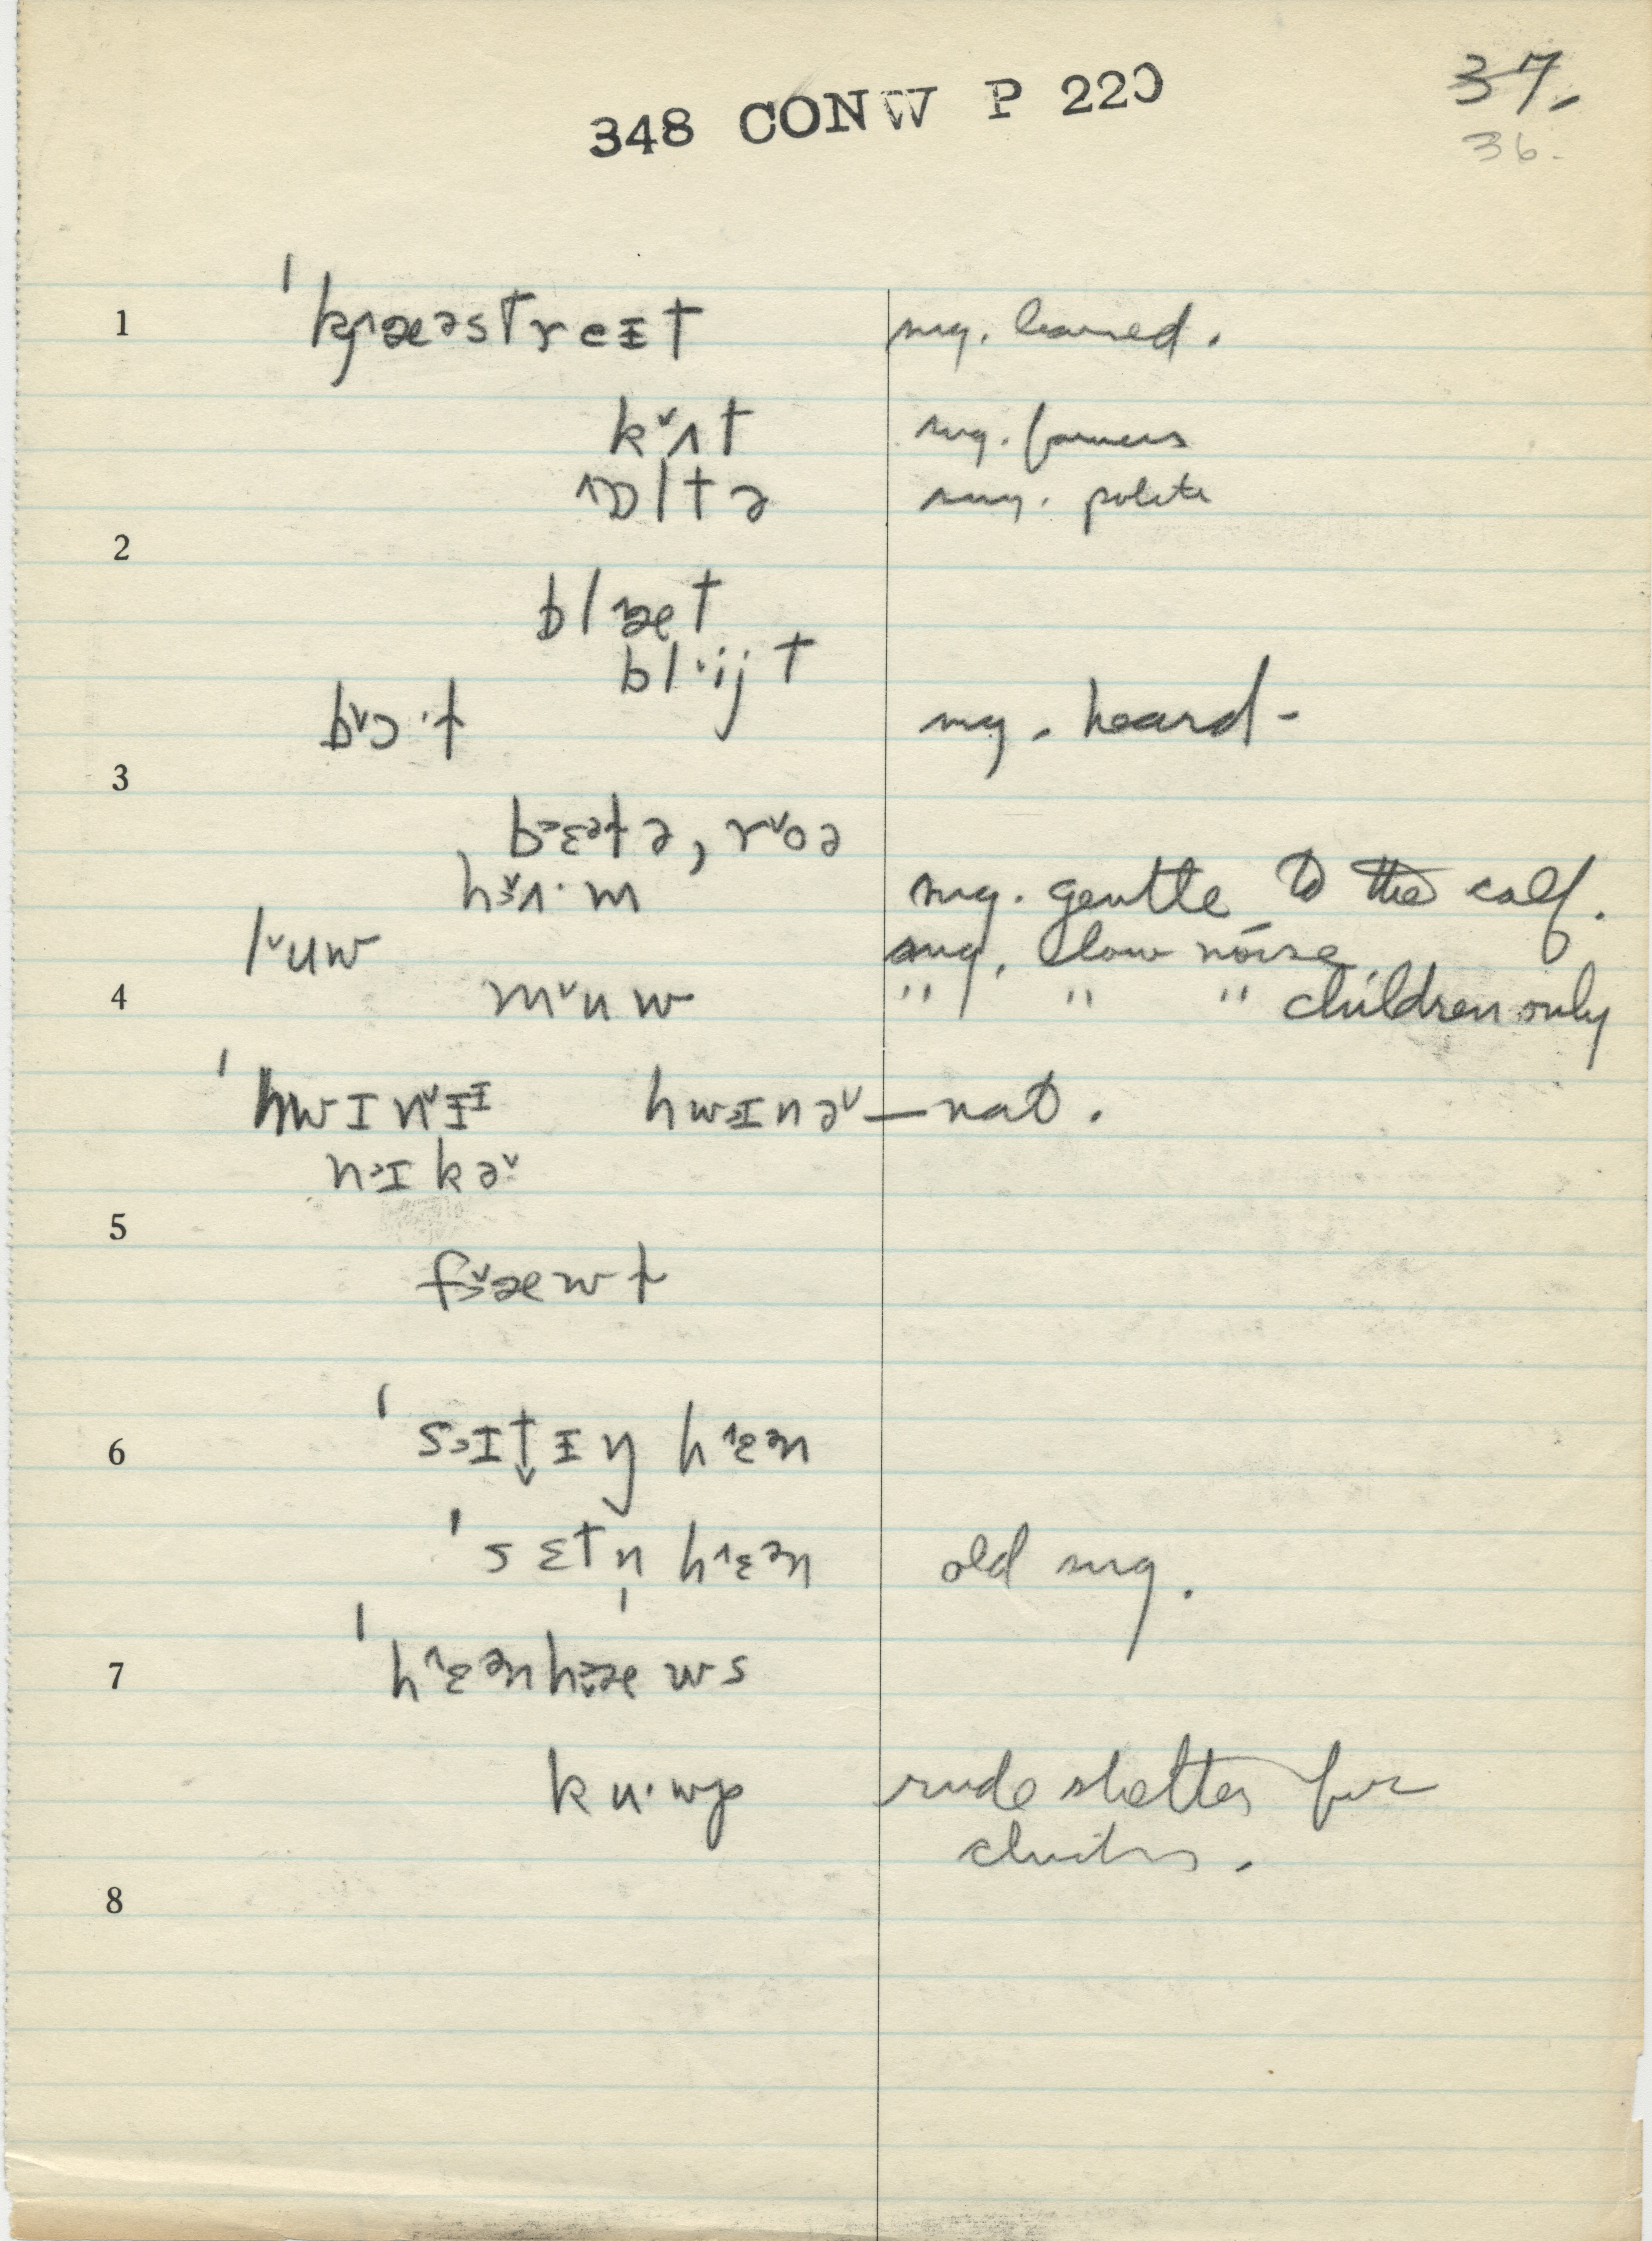 348 CONW P 220
37.
36.
1 ˈkɡ˄æəstreɪt sug. learned.
k˅ʌt sug. farmers
˄ɒltə sug. polite
2
bl˄æt
bl˅ijt
b˅ɔ·t sug. heard -
3
b˃ɛətə, r˅oə
h˅ʌ·m sug. gentle to the calf.
l˅uw sug, low noise
4 m˅uw " " " children only
ˈhwɪn˅ɨɪ hwɪnə˅ — nat.
nɪkə˅
5
f˅æwt
6 ˈsɪt̬ɨŋ h˄ɛən
ˈsɛtn̩ h˄ɛən old sug.
7 ˈh˄ɛənhæws
ku·wp rude shelter for
8